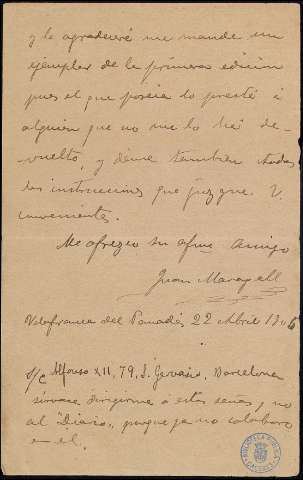 y le agradeceré me mande un
ejemplar de la primera edición
pues el que poseía lo presté á
alguien que no me lo há de-
vuelto, y déme también todas
las instrucciones que juzgue
convenientes.
Me ofrezco su afmo amigo
Juan Maragall
Vilafranca del Panadés 22 Abril
s/c Alfonso XII, 79, S. Gervasio, Barcelona
sírvase dirigirme á estas señas y no
al "Diario", porque ya no colaboro
en él.
BIBLIOTECA